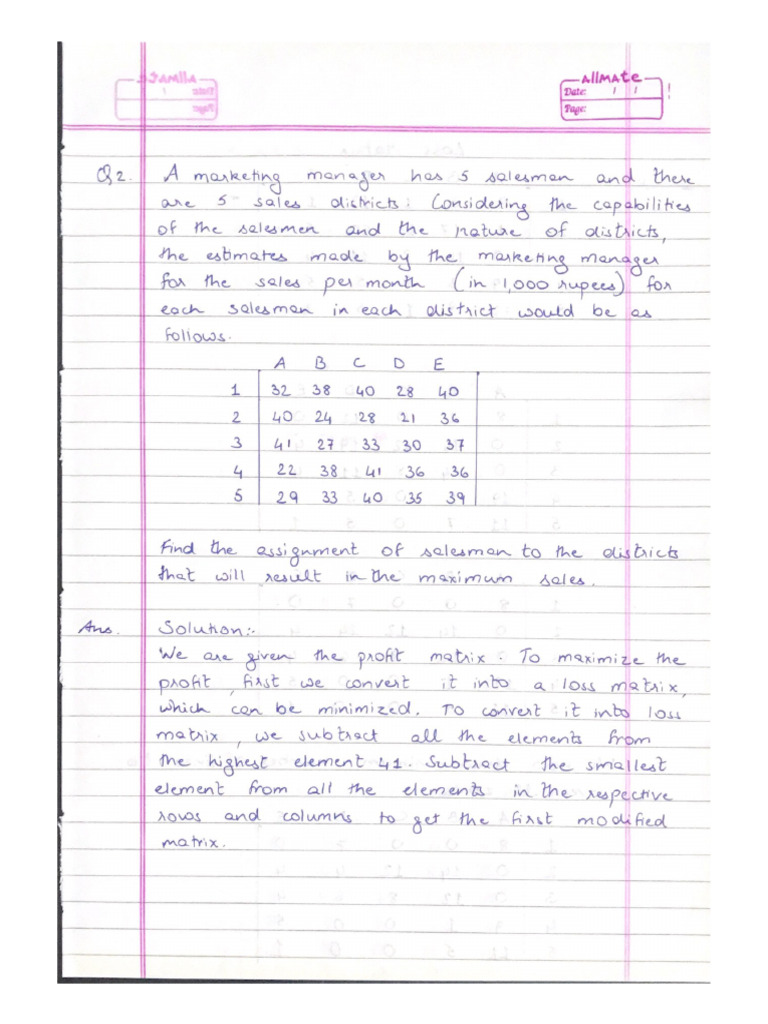 AllMATE
Date: / /
Page:
Q2. A marketing manager has 5 salesman and there
are 5 sales districts. Considering the capabilities
of the salesmen and the nature of districts,
the estimates made by the marketing manager
for the sales per month (in 1,000 rupees) for
each salesman in each district would be as
follows.
A B C D E
1 32 38 40 28 40
2 40 24 28 21 36
3 41 27 33 30 37
4 22 38 41 36 36
5 29 33 40 35 39
Find the assignment of salesman to the districts
that will result in the maximum sales.
Ans. Solution:-
We are given the profit matrix. To maximize the
profit, first we convert it into a loss matrix,
which can be minimized. To convert it into loss
matrix, we subtract all the elements from
the highest element 41. Subtract the smallest
element from all the elements in the respective
rows and columns to get the first modified
matrix.